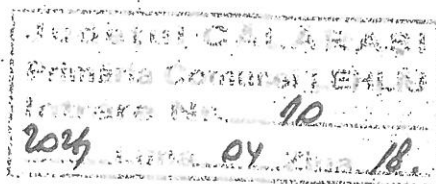 Județul CĂLĂRAȘI
Primăria Comunei
Intrare Nr. 10
2024 04 Ziua 18